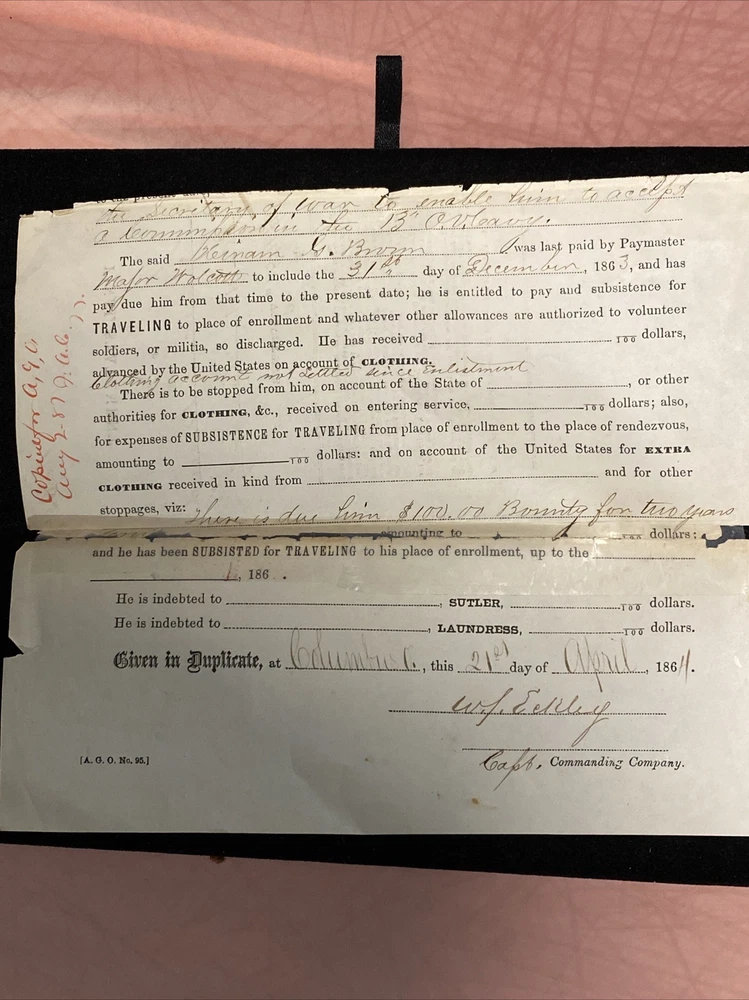 the Secretary of War to enable him to accept
a Commission in the O. V. Cavy.
The said Hiram G. Brown was last paid by Paymaster
Major Wolcott to include the 31st day of December, 1863, and has
pay due him from that time to the present date; he is entitled to pay and subsistence for
TRAVELING to place of enrollment and whatever other allowances are authorized to volunteer
soldiers, or militia, so discharged. He has received 100 dollars,
advanced by the United States on account of CLOTHING.
Clothing account not settled since enlistment
There is to be stopped from him, on account of the State of , or other
authorities for CLOTHING, &c., received on entering service, 100 dollars; also,
for expenses of SUBSISTENCE for TRAVELING from place of enrollment to the place of rendezvous,
amounting to 100 dollars: and on account of the United States for EXTRA
CLOTHING received in kind from and for other
stoppages, viz: There is due him $100.00 Bounty for two years
amounting to 100 dollars:
and he has been SUBSISTED for TRAVELING to his place of enrollment, up to the
, 186 .
He is indebted to , SUTLER, 100 dollars.
He is indebted to , LAUNDRESS, 100 dollars.
Given in Duplicate, at Columbus O., this 21st day of April, 1864.
W. S. Eckley
Capt. Commanding Company.
[A. G. O. No. 95.]
Copied for A. G. O.
Aug 2-87